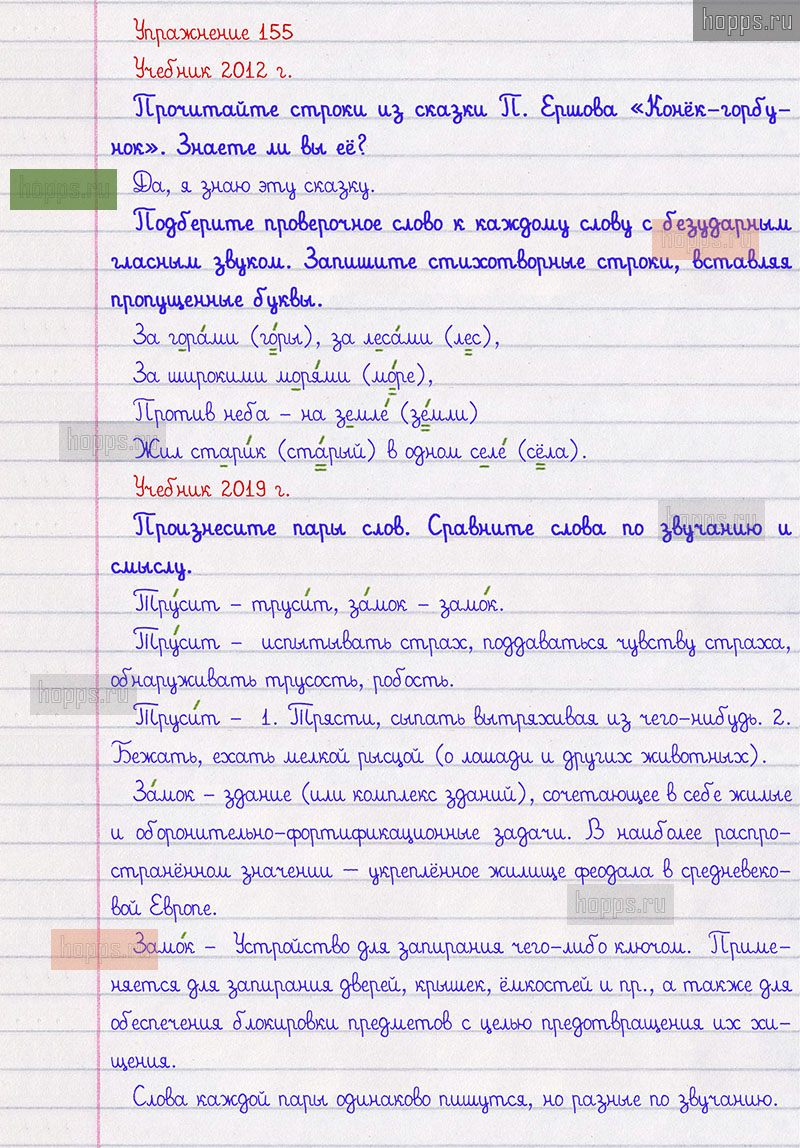 hopps.ru
Упражнение 155
Учебник 2012 г.
Прочитайте строки из сказки П. Ершова «Конёк-горбу-
нок». Знаете ли вы её?
hopps.ru
Да, я знаю эту сказку.
Подберите проверочное слово к каждому слову с безударным
hopps.ru
гласным звуком. Запишите стихотворные строки, вставляя
пропущенные буквы.
За гора́ми (го́ры), за леса́ми (лес),
За широкими моря́ми (мо́ре),
Против неба – на земле́ (зе́мли)
hopps.ru
Жил стари́к (ста́рый) в одном селе́ (сёла).
Учебник 2019 г.
hopps.ru
Произнесите пары слов. Сравните слова по звучанию и
смыслу.
Тру́сит – труси́т, за́мок – замо́к.
Тру́сит – испытывать страх, поддаваться чувству страха,
обнаруживать трусость, робость.
hopps.ru
Труси́т – 1. Трясти, сыпать вытряхивая из чего-нибудь. 2.
Бежать, ехать мелкой рысцой (о лошади и других животных).
За́мок – здание (или комплекс зданий), сочетающее в себе жилые
и оборонительно-фортификационные задачи. В наиболее распро-
странённом значении — укреплённое жилище феодала в средневеко-
вой Европе.
hopps.ru
hopps.ru
Замо́к – Устройство для запирания чего-либо ключом. Приме-
няется для запирания дверей, крышек, ёмкостей и пр., а также для
обеспечения блокировки предметов с целью предотвращения их хи-
щения.
Слова каждой пары одинаково пишутся, но разные по звучанию.